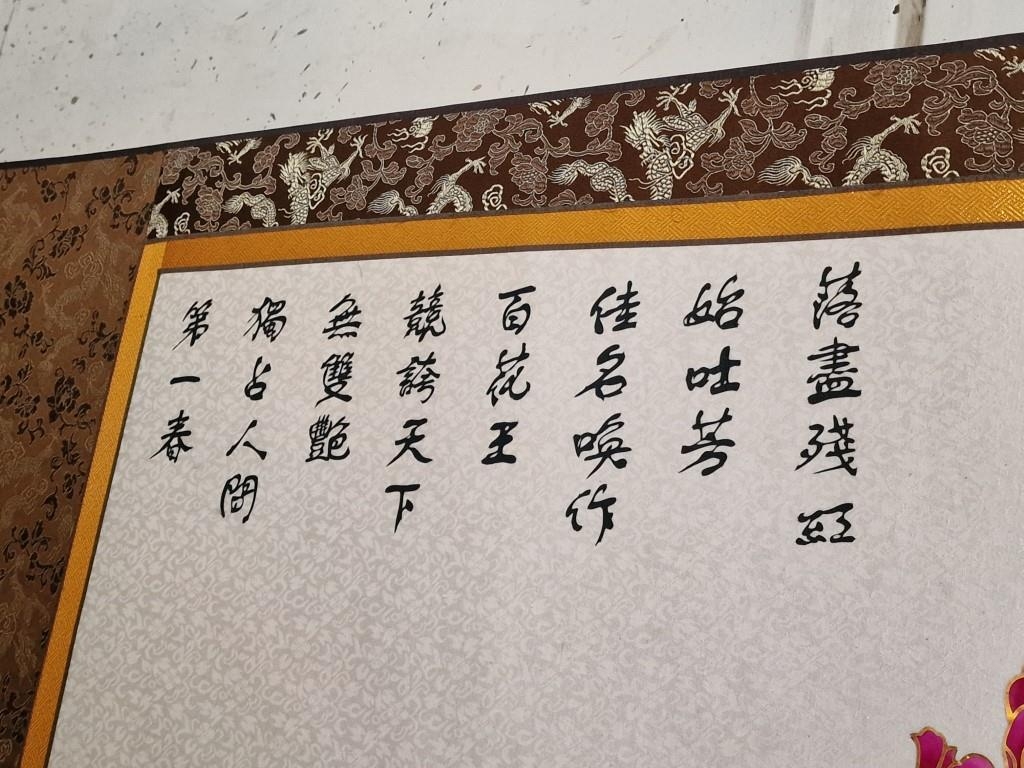 落盡殘紅
始吐芳
佳名喚作
百花王
競誇天下
無雙艷
獨占人間
第一春